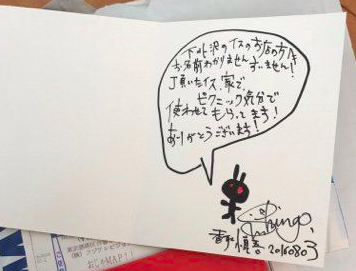 下北沢のイスのお店の方へ
お名前わかりませんすいません！
頂いたイス、家で
ピクニック気分で
使わせてもらってます！
ありがとうございます！
Shingo
香取慎吾 20160803
おじゃMAP!!